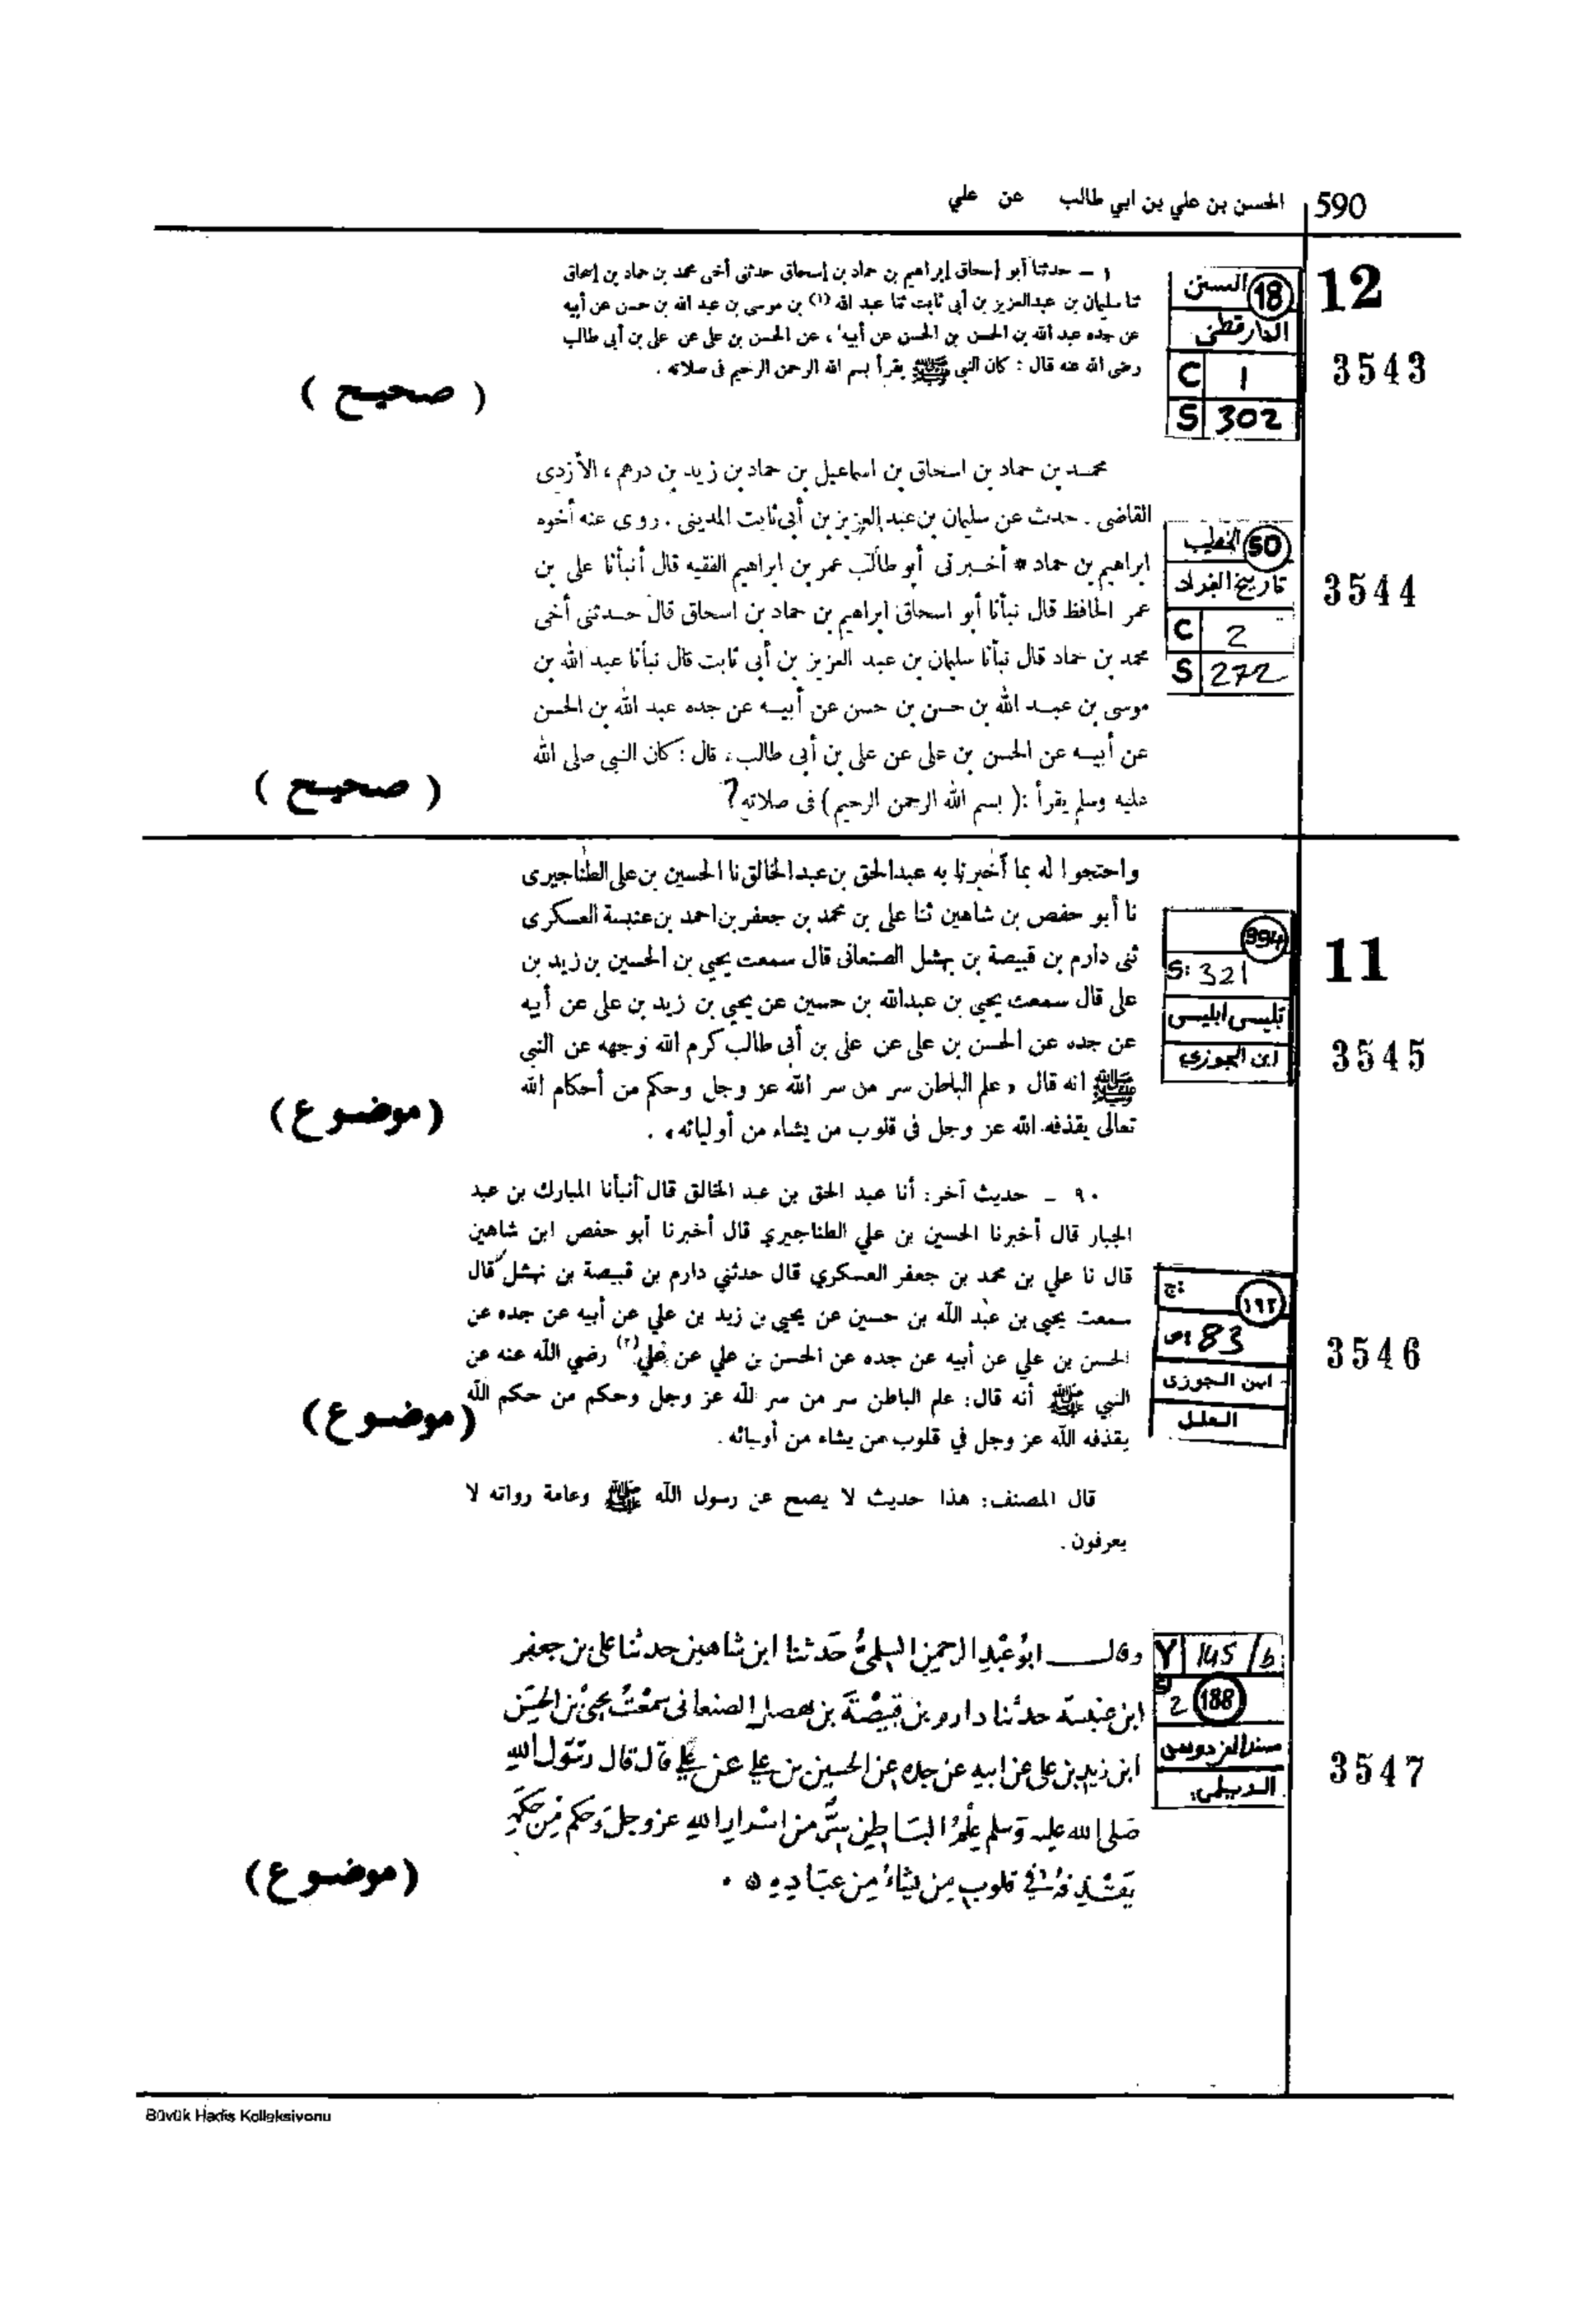 590 الحسن بن علي بن ابي طالب عن علي
12
3543
18 السنن
الدارقطنى
C 1
S 302
١ – حدثنا أبو إسحاق إبراهيم بن حماد بن إسحاق حدثنى أخى محمد بن حماد بن إسحاق
ثنا سليمان بن عبدالعزيز بن أبى ثابت ثنا عبد الله (١) بن موسى بن عبد الله بن حسن عن أبيه
عن جده عبد الله بن الحسن بن الحسن عن أبيه ، عن الحسن بن على عن على بن أبى طالب
رضى الله عنه قال : كان النبى ﷺ يقرأ بسم الله الرحمن الرحيم فى صلاته .
( صحيح )
3544
50 الخطيب
تاريخ
C 2
S 272
محمد بن حماد بن اسحاق بن اسماعيل بن حماد بن زيد بن درهم ، الأزدى
القاضى . حدث عن سليمان بن عبد العزيز بن أبى ثابت المدينى . روى عنه أخوه
ابراهيم بن حماد * أخبرنى أبو طالب عمر بن ابراهيم الفقيه قال أنبأنا على بن
عمر الحافظ قال نبأنا أبو اسحاق ابراهيم بن حماد بن اسحاق قال حدثنى أخى
محمد بن حماد قال نبأنا سليمان بن عبد العزيز بن أبى ثابت قال نبأنا عبد الله بن
موسى بن عبد الله بن حسن بن حسن عن أبيه عن جده عبد الله بن الحسن
عن أبيه عن الحسن بن على عن على بن أبى طالب ، قال : كان النبى صلى الله
عليه وسلم يقرأ : ( بسم الله الرحمن الرحيم ) فى صلاته ?
( صحيح )
11
3545
994
S: 321
تلبيس ابليس
ابن الجوزي
واحتجوا له بما أخبرنا به عبدالحق بن عبدالخالق نا الحسين بن على الطناجيرى
نا أبو حفص بن شاهين ثنا على بن محمد بن جعفر بن احمد بن عنبسة العسكرى
ثنى دارم بن قبيصة بن نهشل الصنعانى قال سمعت يحيى بن الحسين بن زيد بن
على قال سمعت يحيى بن عبدالله بن حسين عن يحيى بن زيد بن على عن أبيه
عن جده عن الحسن بن على عن على بن أبى طالب كرم الله وجهه عن النبى
ﷺ انه قال « علم الباطن سر من سر الله عز وجل وحكم من أحكام الله
تعالى يقذفه الله عز وجل فى قلوب من يشاء من أوليائه » .
(موضوع)
3546
ج: ١٩٢
ص: 83
ابن الجوزى
العلل
٩٠ – حديث آخر: أنا عبد الحق بن عبد الخالق قال أنبأنا المبارك بن عبد
الجبار قال أخبرنا الحسين بن علي الطناجيري قال أخبرنا أبو حفص ابن شاهين
قال نا علي بن محمد بن جعفر العسكري قال حدثني دارم بن قبيصة بن نهشل قال
سمعت يحيى بن عبد الله بن حسين عن يحيى بن زيد بن علي عن أبيه عن جده عن
الحسن بن علي عن أبيه عن جده عن الحسن بن علي عن علي(٢) رضي الله عنه عن
النبي ﷺ أنه قال: علم الباطن سر من سر الله عز وجل وحكم من حكم الله
يقذفه الله عز وجل في قلوب من يشاء من أوليائه.
(موضوع)
قال المصنف: هذا حديث لا يصح عن رسول الله ﷺ وعامة رواته لا
يعرفون .
3547
Y 145/b
2 188
مسند الفردوس
الديلمى
وقال ابو عبد الرحمن السلمي حدثنا ابن شاهين حدثنا على بن جعفر
ابن عنبسة حدثنا دارم بن قبيصة بن الصنعانى سمعت يحيى بن الحسين
ابن زيد بن على عن ابيه عن جده عن الحسين بن علي عن علي قال قال رسول الله
صلى الله عليه وسلم علم الباطن سر من اسرار الله عز وجل وحكم من حكم
يقذفه فى قلوب من يشاء من عباده .
(موضوع)
Büyük Hadis Kolleksiyonu